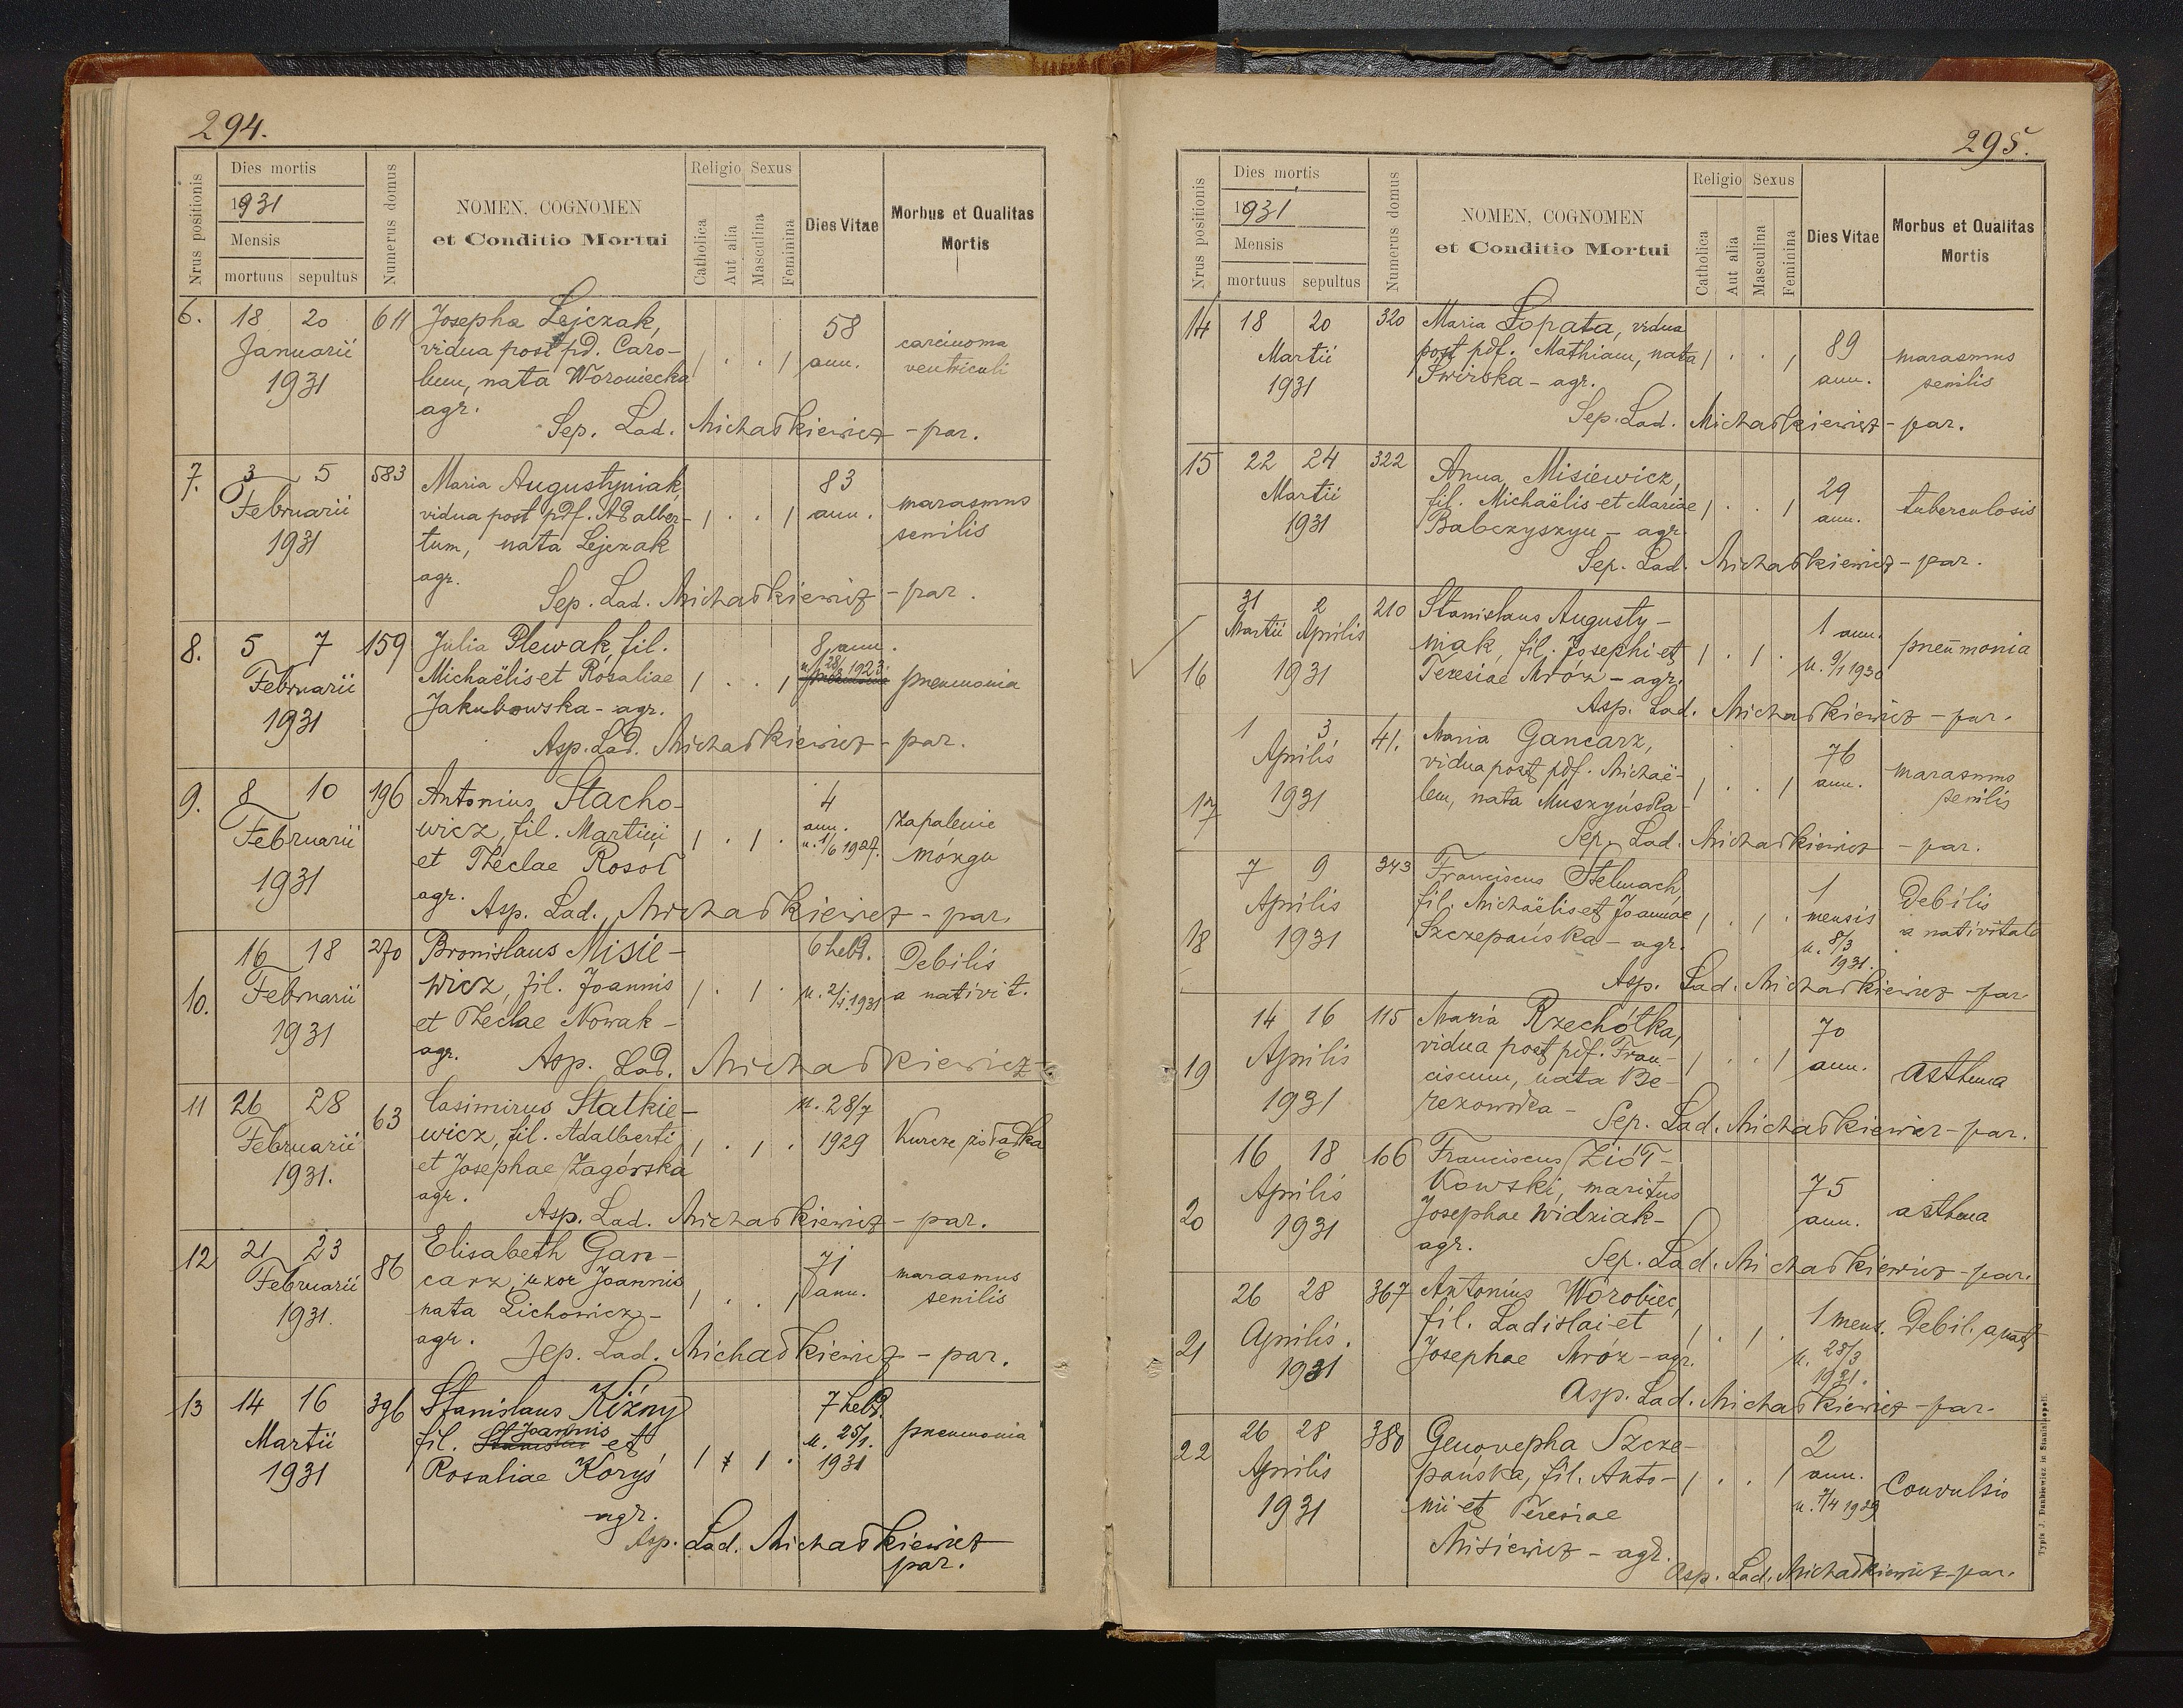 294.
Nrus positionis
Dies mortis
1931
Mensis
mortuus sepultus
Numerus domus
NOMEN, COGNOMEN
et Conditio Mortui
Religio Sexus
Catholica
Aut alia
Masculina
Feminina
Dies Vitae
Morbus et Qualitas
Mortis
6. 18 20 611 Josepha Lejczak, 58 carcinoma
Januarii vidua post pd. Caro- 1 . . 1 ann. ventriculi
1931 lum, nata Woroniecka
agr.
Sep. Lad. Michałkiewicz - par.
7. 3 5 583 Maria Augustyniak, 83 marasmus
Februarii vidua post pdf. Adalber- 1 . . 1 ann. senilis
1931 tum, nata Lejczak
agr.
Sep. Lad. Michałkiewicz - par.
8. 5 7 159 Julia Plewak, fil. 8 ann.
Februarii Michaëlis et Rosaliae 1 . . 1 n. 28/3 1923. pneumonia
1931 Jakubowska - agr.
Asp. Lad. Michałkiewicz - par.
9. 8 10 196 Antonius Stacho- 4 Zapalenie
Februarii wicz, fil. Martini 1 . 1 . ann. mózgu
1931 et Theclae Rosoł n. 1/6 1927.
agr. Asp. Lad. Michałkiewicz - par.
10. 16 18 270 Bronislaus Misie- 6 hebd. Debilis
Februarii wicz, fil. Joannis 1 . 1 . n. 2/1. 1931 a nativit.
1931 et Theclae Nowak -
agr. Asp. Lad. Michałkiewicz -
11 26 28 63 Casimirus Statkie- n. 28/7
Februarii wicz, fil. Adalberti 1 . 1 . 1929 Kurcze żołądka
1931. et Josephae Zagórska
agr. Asp. Lad. Michałkiewicz - par.
12 21 23 86 Elisabeth Gan- 71 marasmus
Februarii carz, uxor Joannis 1 . . 1 ann. senilis
1931. nata Lichowicz -
agr. Sep. Lad. Michałkiewicz - par.
13 14 16 396 Stanislaus Kiźny 7 hebd. pneumonia
Martii fil. Joannis et n. 25/1.
1931 Rosaliae Koryś 1 . 1 . 1931
agr.
Asp. Lad. Michałkiewicz
par.
295.
Nrus positionis
Dies mortis
1931
Mensis
mortuus sepultus
Numerus domus
NOMEN, COGNOMEN
et Conditio Mortui
Religio Sexus
Catholica
Aut alia
Masculina
Feminina
Dies Vitae
Morbus et Qualitas
Mortis
14 18 20 320 Maria Łopata, vidua 89 marasmus
Martii post pdf. Mathiam, nata 1 . . 1 ann. senilis
1931 Świrska - agr.
Sep. Lad. Michałkiewicz - par.
15 22 24 322 Anna Misiewicz, 29 tuberculosis
Martii fil. Michaëlis et Mariae 1 . . 1 ann.
1931 Babczyszyn - agr.
Sep. Lad. Michałkiewicz - par.
31 2 210 Stanislaus Augusty- 1 ann. pneumonia
Martii Aprilis niak, fil. Josephi et 1 . 1 . n. 9/1 1930
16 1931 Teresiae Mróz - agr.
Asp. Lad. Michałkiewicz - par.
1 3 41. Maria Gancarz, 76 marasmus
Aprilis vidua post pdf. Michaë- 1 . . 1 ann. senilis
17 1931 lem, nata Muszyńska -
Sep. Lad. Michałkiewicz - par.
7 9 343 Franciscus Stelmach, 1 Debilis
Aprilis fil. Michaëlis et Joannae 1 . 1 . mensis a nativitate
18 1931 Szczepańska - agr. n. 8/3
1931.
Asp. Lad. Michałkiewicz - par.
14 16 115 Maria Rzechótka, 70
Aprilis vidua post pdf. Fran- 1 . . 1 ann. asthma
19 1931 ciscum, nata Be-
rezowska - Sep. Lad. Michałkiewicz - par.
16 18 166 Franciscus Ziół-
Aprilis kowski, maritus 75 asthma
20 1931 Josephae Widziak - ann.
agr. Sep. Lad. Michałkiewicz - par.
26 28 367 Antonius Worobiec,
Aprilis. fil. Ladislai et 1 . 1 . 1 mens. Debil. a nat
21 1931 Josephae Mróz - agr. n. 28/3
1931.
Asp. Lad. Michałkiewicz - par.
22 26 28 380 Genovepha Szcze- 2
Aprilis pańska, fil. Anto- 1 . . 1 ann. Convulsio
1931 nii et Teresiae n. 7/4 1929
Misiewicz - agr.
Asp. Lad. Michałkiewicz - par.
Typis J. Dankiewicz in Stanislaopoli.